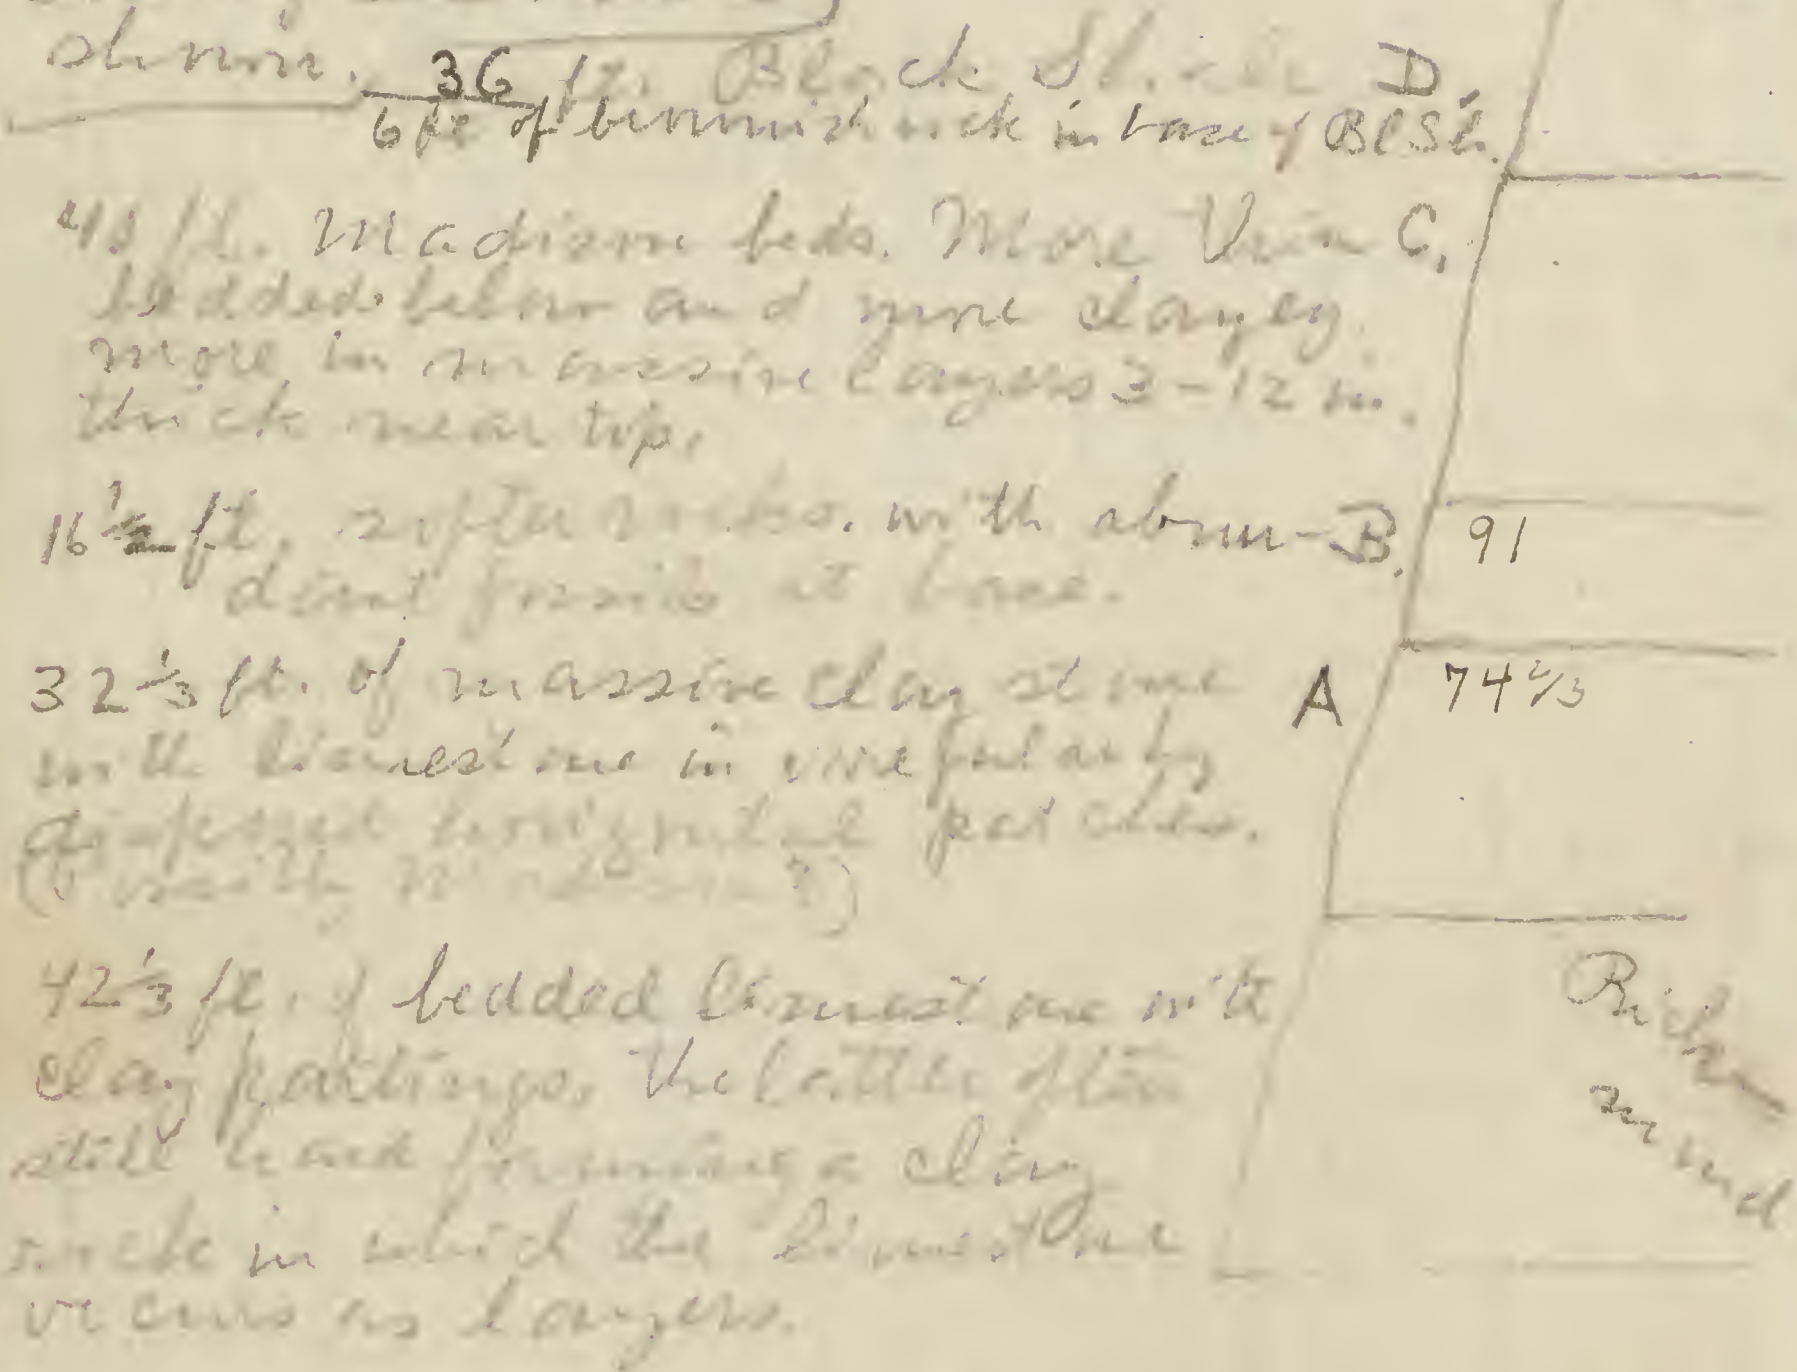 shown. 36 ft. Black Shale D.
6 ft of brownish rock in base of Bl Sh.
41 ft. Madison beds. More thin C.
bedded below and more clayey.
more in massive layers 3-12 in.
thick near top.
16 1/2 ft. softer rocks. with abun- B.
91
dant fossils at base.
32 1/3 ft. of massive clay stone A
74 2/3
with limestone in irregularly
disposed horizontal patches.
42 1/3 ft. of bedded limestone with
Rich
clay partings, the latter often
mond
still hard forming a clay
rock in which the limestone
occurs as layers.